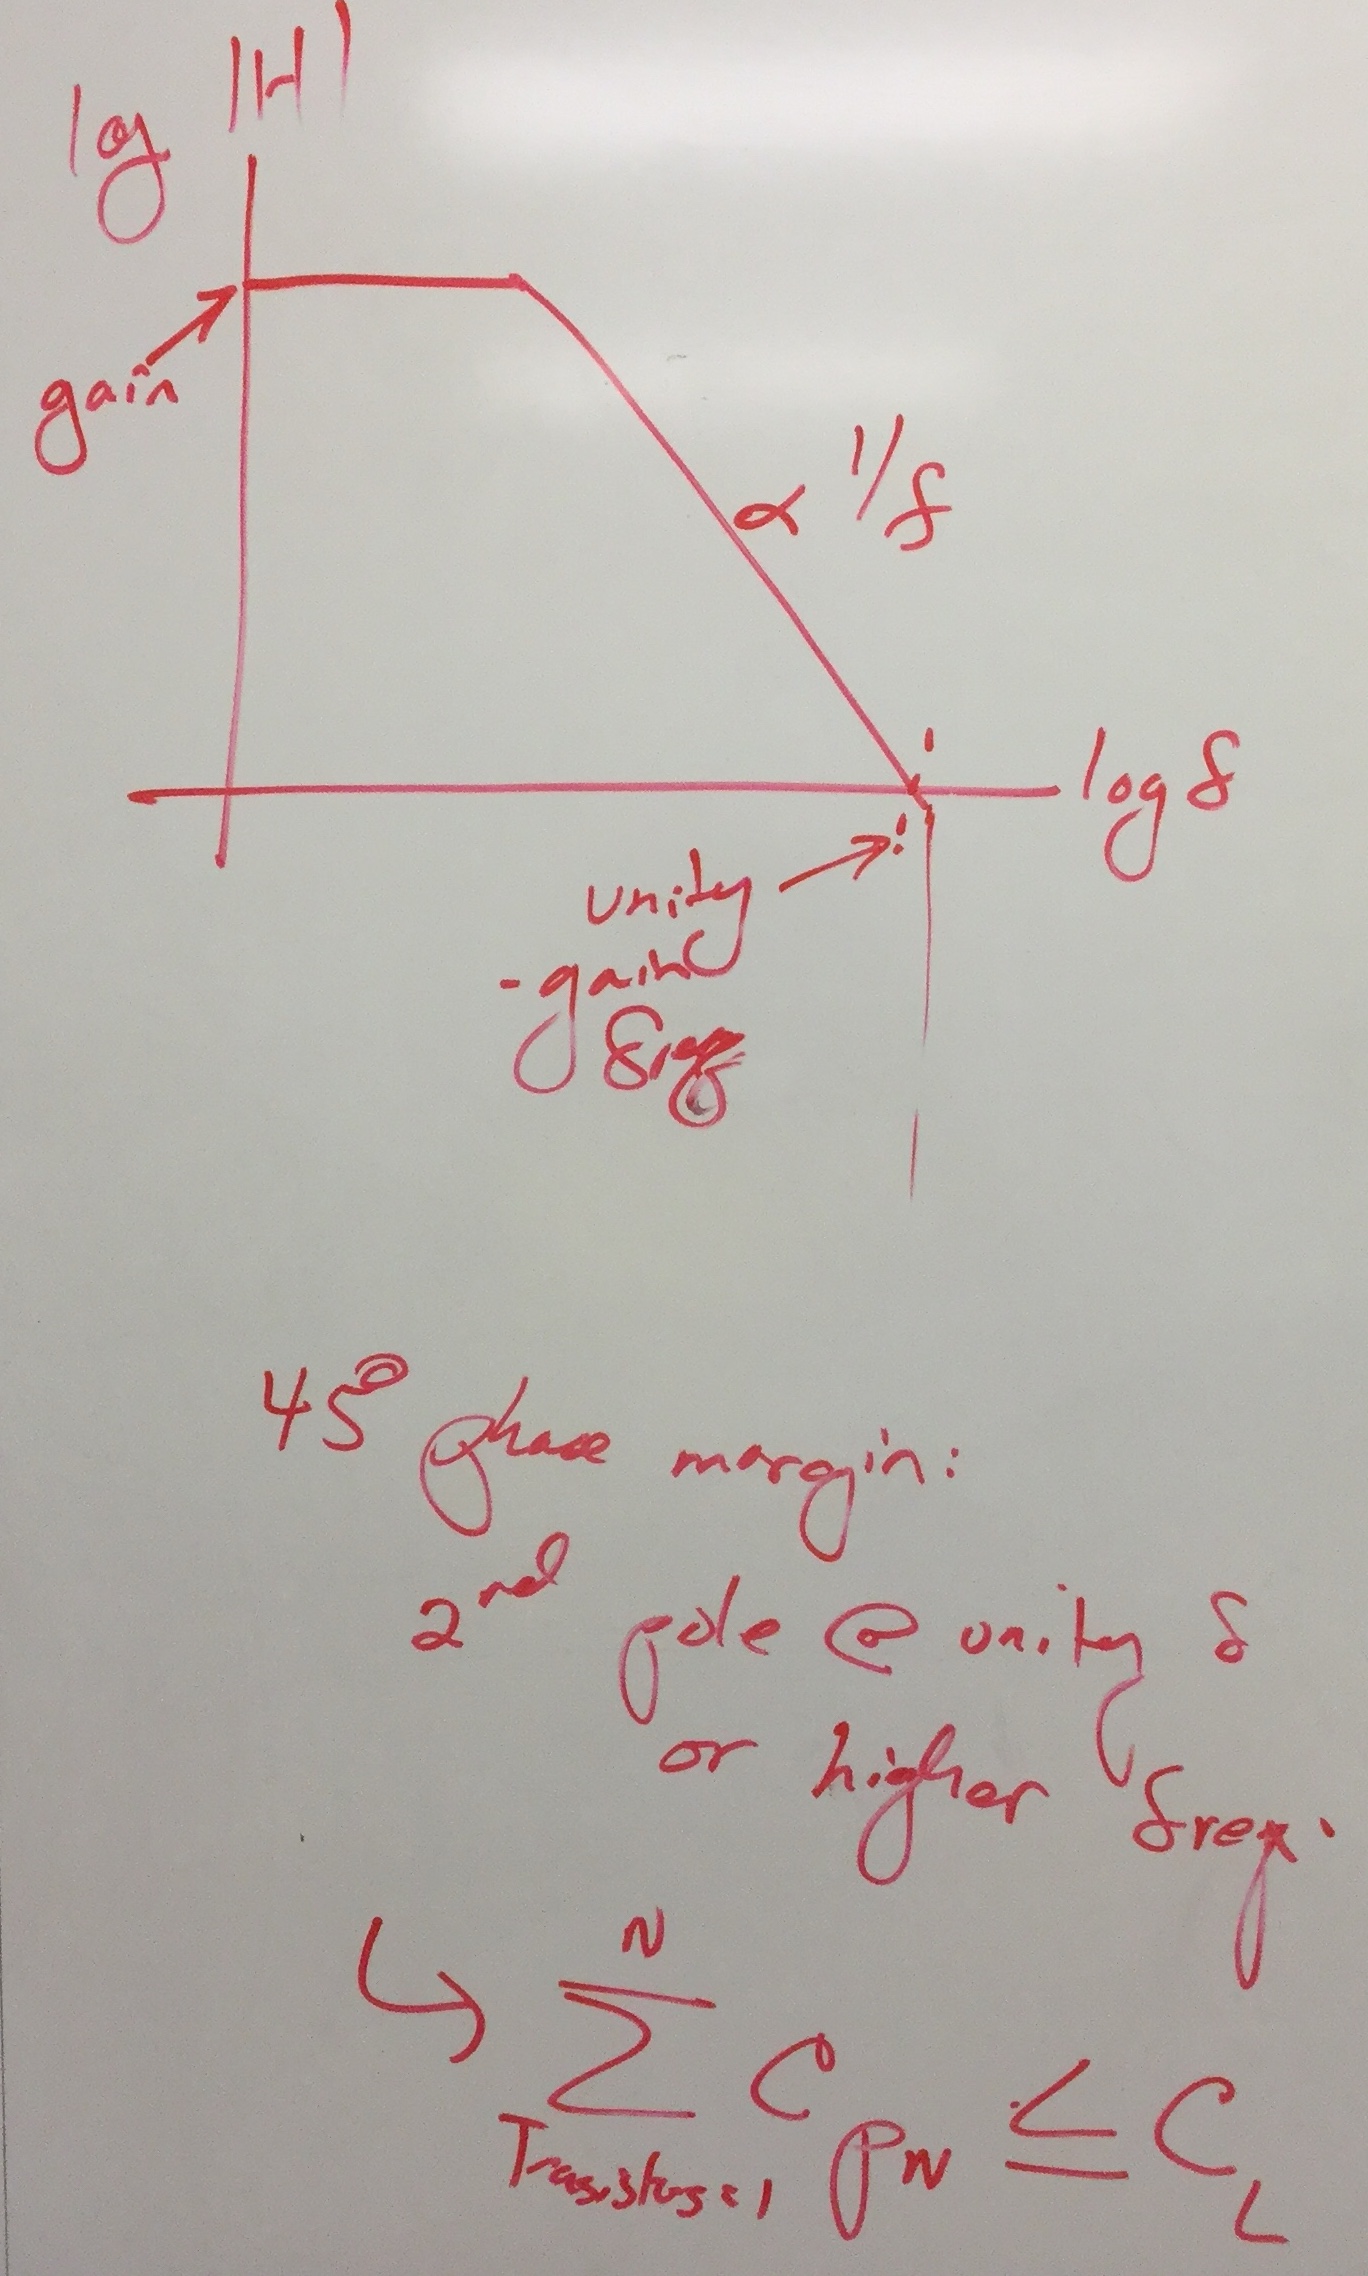 log |H|
gain
∝ 1/f
log f
unity
-gain
freq
45° phase margin:
2nd pole @ unity f
or higher freq.
↳ N
∑ C_PN ≤ C_L
Transistors=1